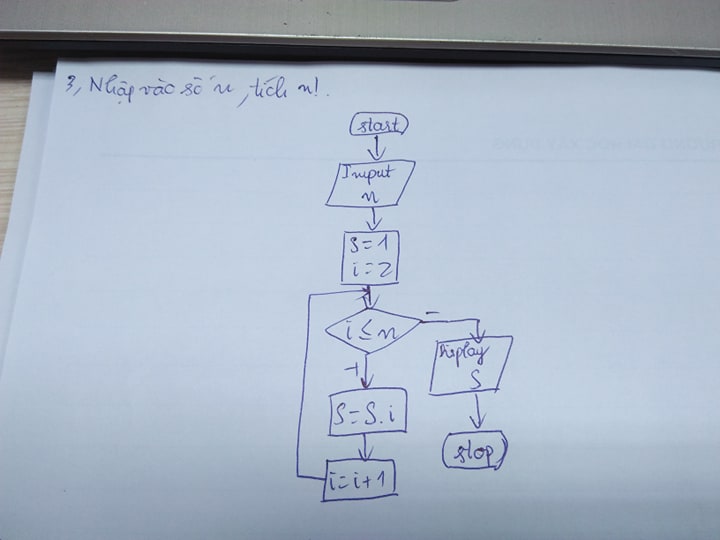 3, Nhập vào số n, tích n!.
start
Input
n
S=1
i=2
i ≤ n
-
+
Display
S
S=S.i
stop
i=i+1